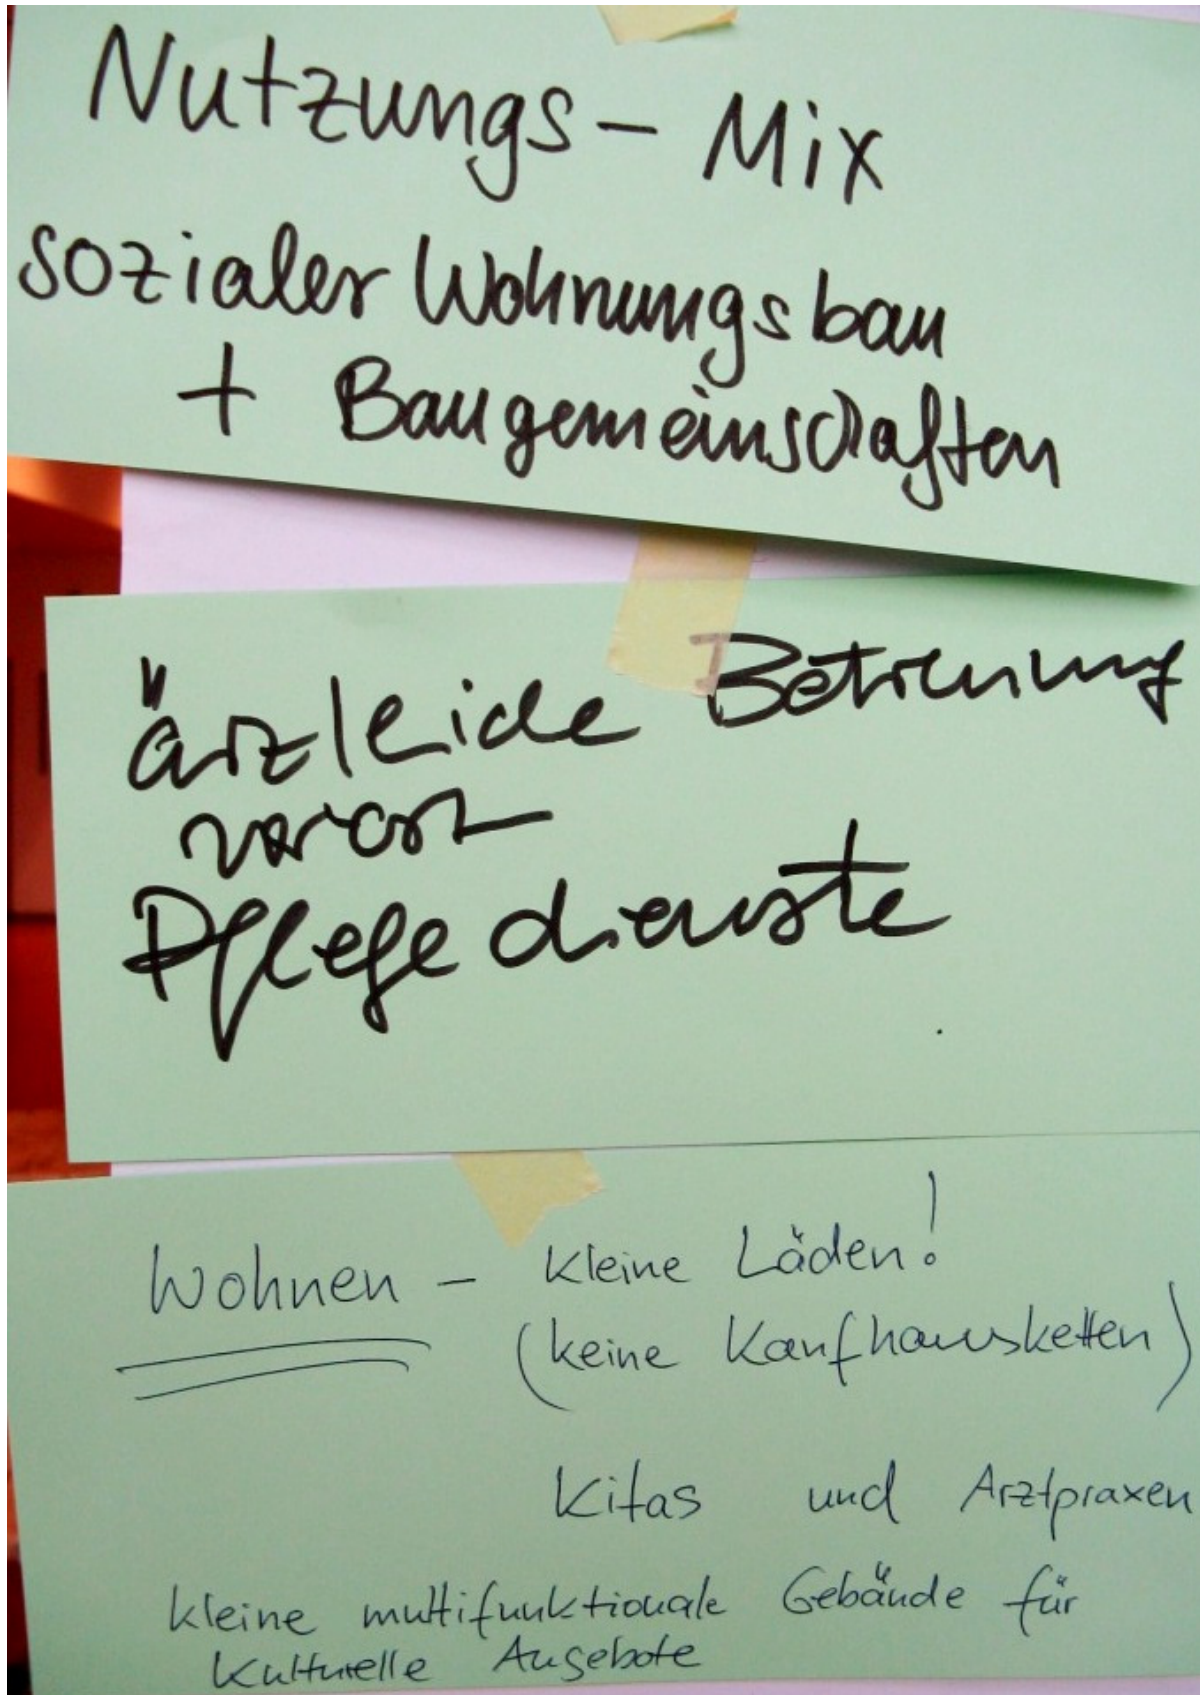 Nutzungs - Mix
sozialer Wohnungsbau
+ Baugemeinschaften
ärzleiche Betreuung
vorort
Pflegedienste
Wohnen - kleine Läden!
(keine Kaufhausketten)
Kitas und Arztpraxen
kleine multifunktionale Gebäude für
kulturelle Angebote